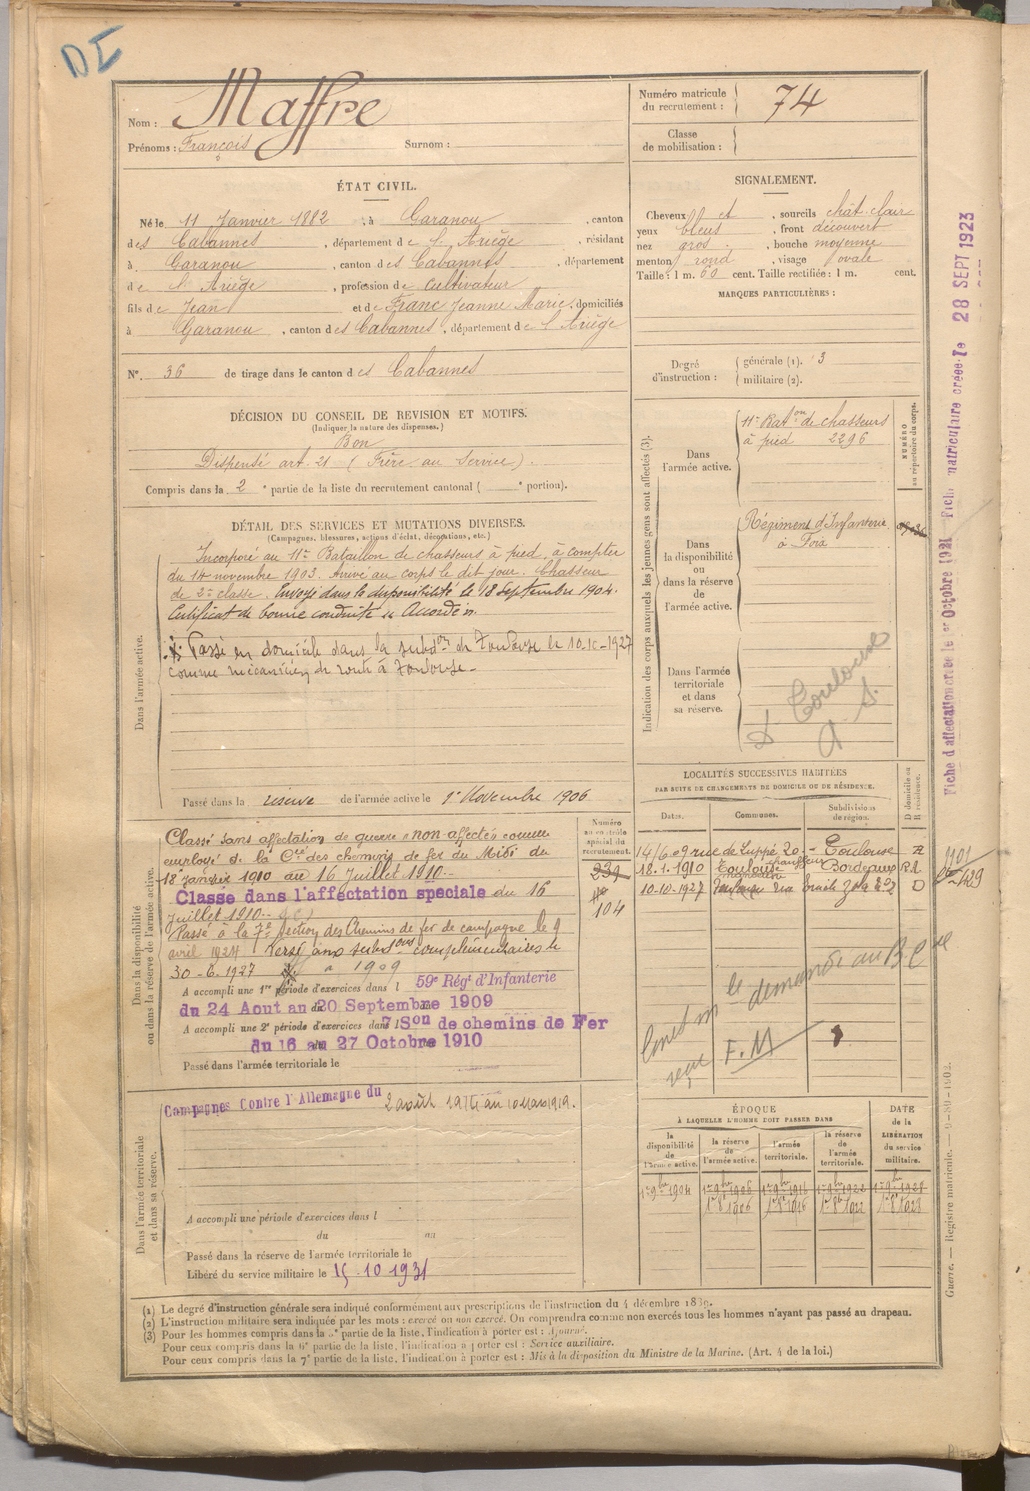 DI
Nom : Maffre
Prénoms : François Surnom :
Numéro matricule du recrutement : 74
Classe de mobilisation :
ÉTAT CIVIL.
Né le 11 Janvier 1882, à Garanou, canton
des Cabannes, département de l'Ariège, résidant
à Garanou, canton des Cabannes, département
de l'Ariège, profession de Cultivateur
fils de Jean et de Franc Jeanne Marie, domiciliés
à Garanou, canton des Cabannes, département de l'Ariège
No. 36 de tirage dans le canton des Cabannes
SIGNALEMENT.
Cheveux et, sourcils chât. clair
yeux bleus, front découvert
nez gros, bouche moyenne
menton rond, visage ovale
Taille : 1 m. 60 cent. Taille rectifiée : 1 m. cent.
MARQUES PARTICULIÈRES :
Degré d'instruction : générale (1). 3
militaire (2).
DÉCISION DU CONSEIL DE REVISION ET MOTIFS.
(Indiquer la nature des dispenses.)
Bon
Dispensé art. 21 (Frère au service).
Compris dans la 2e partie de la liste du recrutement cantonal ( e portion).
DÉTAIL DES SERVICES ET MUTATIONS DIVERSES.
(Campagnes, blessures, actions d'éclat, décorations, etc.)
Dans l'armée active.
Incorporé au 11e Bataillon de chasseurs à pied, à compter
du 14 novembre 1903. Arrivé au corps le dit jour. Chasseur
de 2e classe. Envoyé dans la disponibilité le 18 Septembre 1904.
Certificat de bonne conduite "Accordé".
Passé en domicile dans la subdon de Toulouse le 10-10-1927
comme mécanicien de route à Toulouse
Passé dans la réserve de l'armée active le 1er Novembre 1906
Indication des corps auxquels les jeunes gens sont affectés (3).
NUMÉRO au répertoire du corps.
Dans l'armée active.
11e Baton de chasseurs
à pied 2296
Dans la disponibilité ou dans la réserve de l'armée active.
Régiment d'Infanterie
à Foix
Dans l'armée territoriale et dans sa réserve.
Toulouse
A. S.
LOCALITÉS SUCCESSIVES HABITÉES
PAR SUITE DE CHANGEMENTS DE DOMICILE OU DE RÉSIDENCE.
Dates. Communes. Subdivisions de région. D domicile ou R résidence.
14/6.09 rue de Luppé 20 - Toulouse
18.1.1910 Toulouse chauffeur Bordeaux
10-10-1927 rue D
Dans la disponibilité ou dans la réserve de l'armée active.
Numéro au contrôle spécial du recrutement.
239
104
Classé sans affectation de guerre "non-affecté" comme
employé de la Cie des chemins de fer du Midi du
18 janvier 1910 au 16 Juillet 1910
Classé dans l'affectation spéciale du 16
Juillet 1910
Passé à la 7e section des Chemins de fer de campagne le 9
avril 1924 Versé aux subdons complémentaires le
30-6-1927 " 1909
A accompli une 1re période d'exercices dans l 59e Régt d'Infanterie
du 24 Aout au 20 Septembre 1909
A accompli une 2e période d'exercices dans l 7 Son de chemins de Fer
du 16 au 27 Octobre 1910
Passé dans l'armée territoriale le
le demande au B
reçu F. M
Dans l'armée territoriale et dans sa réserve.
Campagnes Contre l'Allemagne du 2 août 1914 au 10 mars 1919.
A accompli une période d'exercices dans l
du au
Passé dans la réserve de l'armée territoriale le
Libéré du service militaire le 15.10.1931
ÉPOQUE
À LAQUELLE L'HOMME DOIT PASSER DANS
DATE de la LIBÉRATION du service militaire.
la disponibilité de l'armée active. la réserve de l'armée active. l'armée territoriale. la réserve de l'armée territoriale.
1er 9bre 1904 1er 9bre 1906 1er 9bre 1916 1er 9bre 1922 1er 9bre 1928
1er 8bre 1906 1er 8bre 1916 1er 8bre 1922 1er 8bre 1928
Fiche d'affectation créée le 1er Octobre 1921 Fiche matriculaire créée le 28 SEPT 1923
Guerre. — Registre matricule.
(1) Le degré d'instruction générale sera indiqué conformément aux prescriptions de l'instruction du 4 décembre 1889.
(2) L'instruction militaire sera indiquée par les mots : exercé ou non exercé. On comprendra comme non exercés tous les hommes n'ayant pas passé au drapeau.
(3) Pour les hommes compris dans la 5e partie de la liste, l'indication à porter est : Ajourné.
Pour ceux compris dans la 6e partie de la liste, l'indication à porter est : Service auxiliaire.
Pour ceux compris dans la 7e partie de la liste, l'indication à porter est : Mis à la disposition du Ministre de la Marine. (Art. 4 de la loi.)